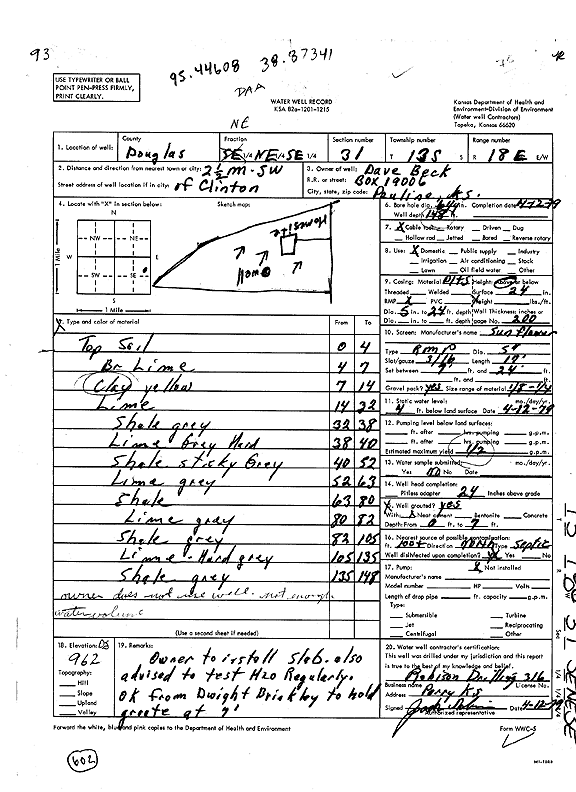 93
95.44608 38.87341
DAA
USE TYPEWRITER OR BALL
POINT PEN-PRESS FIRMLY,
PRINT CLEARLY.
WATER WELL RECORD
KSA 82a-1201-1215
Kansas Department of Health and
Environment-Division of Environment
(Water well Contractors)
Topeka, Kansas 66620
NE
1. Location of well: County Douglas Fraction SE 1/4 NE 1/4 SE 1/4 Section number 31 Township number T 13S S Range number R 18E E/W
2. Distance and direction from nearest town or city: 2½ m. SW
Street address of well location if in city: of Clinton
3. Owner of well: Dave Beck
R.R. or street: Box 19006
City, state, zip code: Pauline, Ks.
4. Locate with "X" in section below:
Sketch map:
N
NW NE
W E
SW SE
S
1 Mile
1 Mile
Home
6. Bore hole dia. in. Completion date 4-12-79
Well depth 148 ft.
7. X Cable tool Rotary Driven Dug
Hollow rod Jetted Bored Reverse rotary
8. Use: X Domestic Public supply Industry
Irrigation Air conditioning Stock
Lawn Oil field water Other
9. Casing: Material Height: Above or below
Threaded Welded surface 24 in.
RMP X PVC Weight lbs./ft.
Dia. 5 in. to 24 ft. depth Wall Thickness: inches or
Dia. in. to ft. depth gage No. 200
5. Type and color of material From To
Top Soil 0 4
Br Lime 4 7
Clay yellow 7 14
Lime 14 32
Shale grey 32 38
Lime Grey Hard 38 40
Shale sticky Grey 40 52
Lime grey 52 63
Shale 63 80
Lime gray 80 82
Shale grey 82 105
Lime - Hard grey 105 135
Shale grey 135 148
owner does not use well - not enough
water volume
(Use a second sheet if needed)
10. Screen: Manufacturer's name Sunflower
Type RMP Dia. 5"
Slot/gauze 3/16 Length
Set between ft. and 24 ft.
ft. and ft.
Gravel pack? yes Size range of material 1/8-1/4
11. Static water level: mo./day/yr.
4 ft. below land surface Date 4-12-79
12. Pumping level below land surfaces:
ft. after hrs. pumping g.p.m.
ft. after hrs. pumping g.p.m.
Estimated maximum yield 1/2 g.p.m.
13. Water sample submitted: mo./day/yr.
Yes No Date
14. Well head completion:
Pitless adapter 24 Inches above grade
15. Well grouted? yes
With: X Neat cement Bentonite Concrete
Depth: From 0 ft. to 7 ft.
16. Nearest source of possible contamination:
ft. Direction Type Septic
Well disinfected upon completion? X Yes No
17. Pump: X Not installed
Manufacturer's name
Model number HP Volts
Length of drop pipe ft. capacity g.p.m.
Type:
Submersible Turbine
Jet Reciprocating
Centrifugal Other
18. Elevation:
962
Topography:
Hill
Slope
Upland
Valley
19. Remarks:
Owner to install Slab. also
advised to test H2O Regularly.
OK from Dwight Brinkley to hold
groute at 7'
20. Water well contractor's certification:
This well was drilled under my jurisdiction and this report
is true to the best of my knowledge and belief.
Drilling 316
Business name License No.
Address Perry Ks
Signed Date 4-12-79
Authorized representative
Forward the white, blue and pink copies to the Department of Health and Environment
Form WWC-5
602